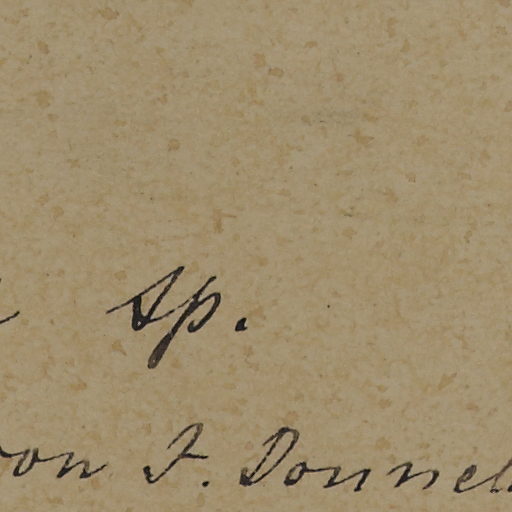 sp.
on F. Donnel